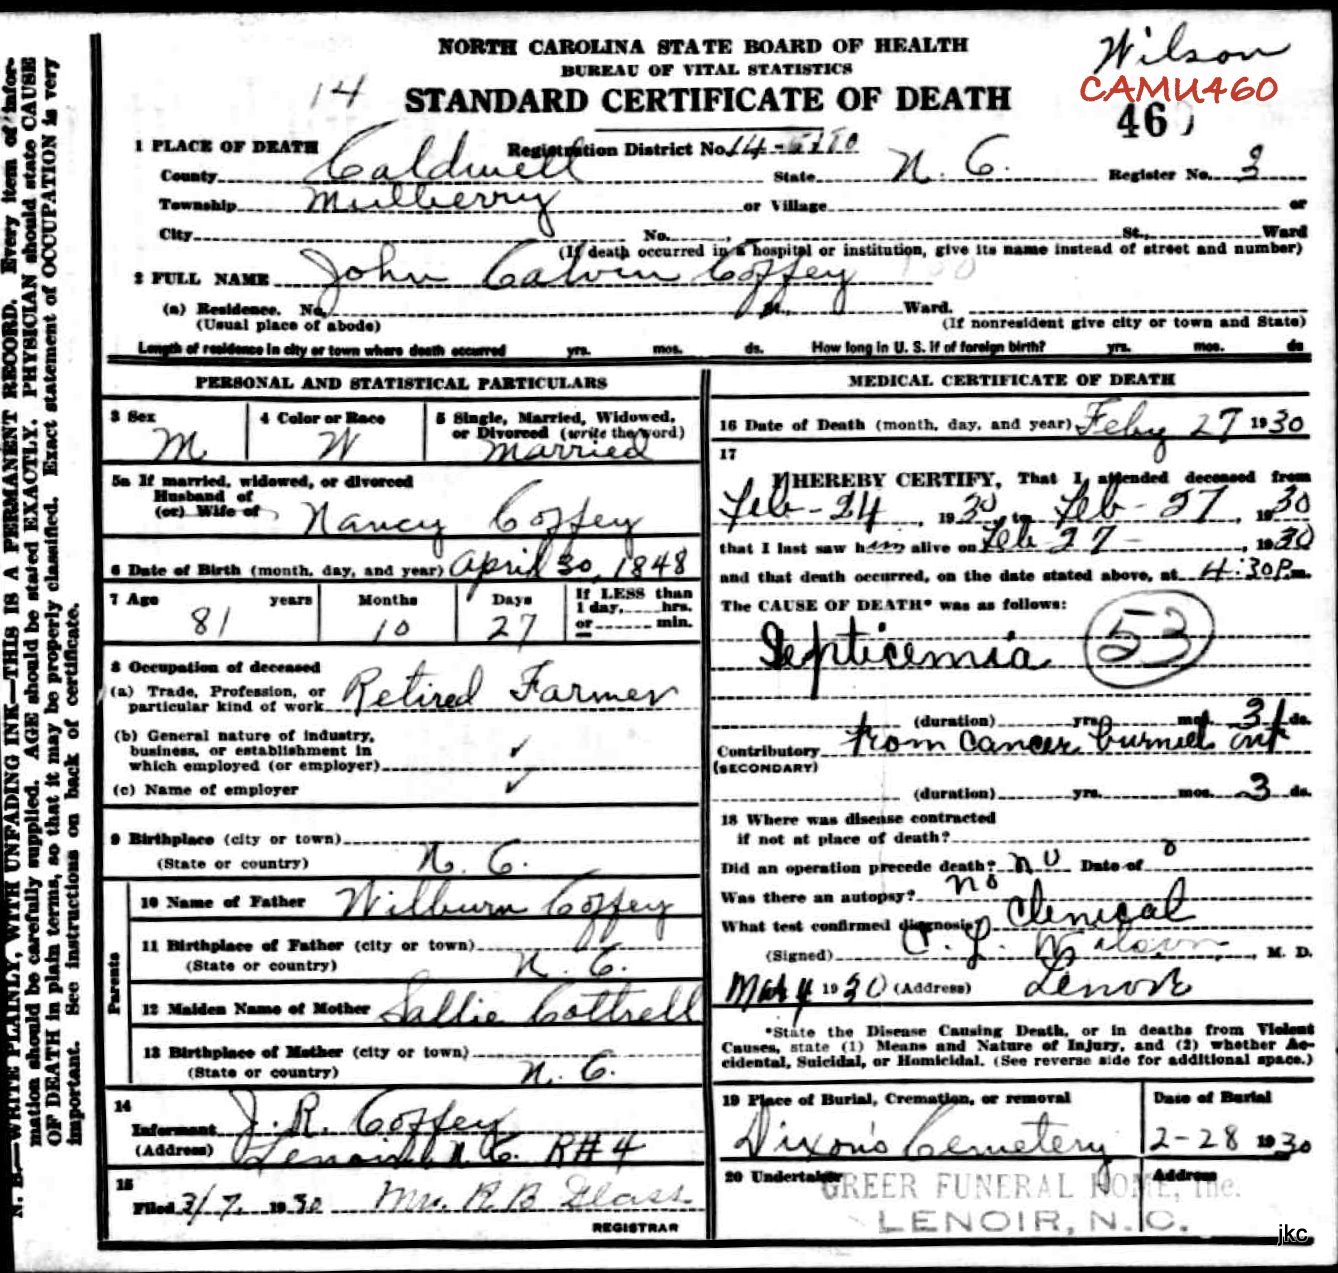 NORTH CAROLINA STATE BOARD OF HEALTH
Wilson
BUREAU OF VITAL STATISTICS
CAMU460
14 STANDARD CERTIFICATE OF DEATH
46
1 PLACE OF DEATH Registration District No. 14-
County Caldwell State N. C. Register No. 3
Township Mulberry or Village or
City No. St., Ward
(If death occurred in a hospital or institution, give its name instead of street and number)
2 FULL NAME John Calvin Coffey
(a) Residence. No. St., Ward.
(Usual place of abode) (If nonresident give city or town and State)
Length of residence in city or town where death occurred yrs. mos. ds. How long in U. S. if of foreign birth? yrs. mos. ds
PERSONAL AND STATISTICAL PARTICULARS
3 Sex M
4 Color or Race W
5 Single, Married, Widowed, or Divorced (write the word) Married
5a If married, widowed, or divorced
Husband of
(or) Wife of Nancy Coffey
6 Date of Birth (month, day, and year) April 30, 1848
7 Age 81 years 10 Months 27 Days If LESS than 1 day, hrs. or min.
8 Occupation of deceased
(a) Trade, Profession, or particular kind of work Retired Farmer
(b) General nature of industry, business, or establishment in which employed (or employer) ✓
(c) Name of employer ✓
9 Birthplace (city or town)
(State or country) N. C.
Parents
10 Name of Father Wilburn Coffey
11 Birthplace of Father (city or town)
(State or country) N. C.
12 Maiden Name of Mother Sallie Cottrell
13 Birthplace of Mother (city or town)
(State or country) N. C.
14
Informant J. R. Coffey
(Address) Lenoir N. C. R#4
15
Filed 3/7, 1930 Mrs. R B Glass
REGISTRAR
MEDICAL CERTIFICATE OF DEATH
16 Date of Death (month, day, and year) Feby 27 1930
17
I HEREBY CERTIFY, That I attended deceased from
Feb-24, 1930, to Feb-27, 1930
that I last saw him alive on Feb 27-, 1930
and that death occurred, on the date stated above, at 4:30 P.m.
The CAUSE OF DEATH* was as follows:
Septicemia 53
(duration) yrs. mos. 31 ds.
Contributory from cancer burned out
(SECONDARY)
(duration) yrs. mos. 3 ds.
18 Where was disease contracted
if not at place of death?
Did an operation precede death? no Date of 0
Was there an autopsy? no
What test confirmed diagnosis? Clenical
(Signed) L. Wilson, M. D.
Mar 4 1930 (Address) Lenoir
*State the Disease Causing Death, or in deaths from Violent
Causes, state (1) Means and Nature of Injury, and (2) whether Ac-
cidental, Suicidal, or Homicidal. (See reverse side for additional space.)
19 Place of Burial, Cremation, or removal
Dixon's Cemetery
Date of Burial
2-28 1930
20 Undertaker Address
GREER FUNERAL HOME, Inc.
LENOIR, N. C.
jkc
N. B.—WRITE PLAINLY, WITH UNFADING INK—THIS IS A PERMANENT RECORD. Every item of infor-
mation should be carefully supplied. AGE should be stated EXACTLY. PHYSICIAN should state CAUSE
OF DEATH in plain terms, so that it may be properly classified. Exact statement of OCCUPATION is very
important. See instructions on back of certificate.